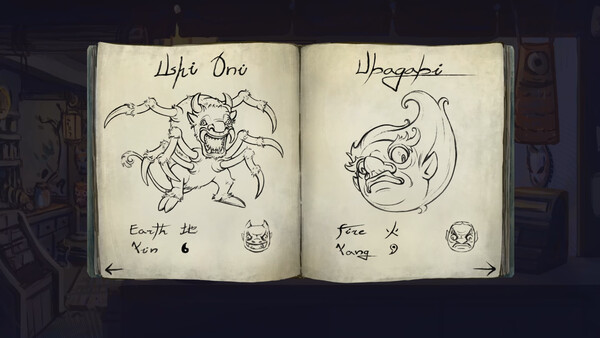 Ushi Oni
Earth 地
Yin
Ubagabi
Fire 火
Yang